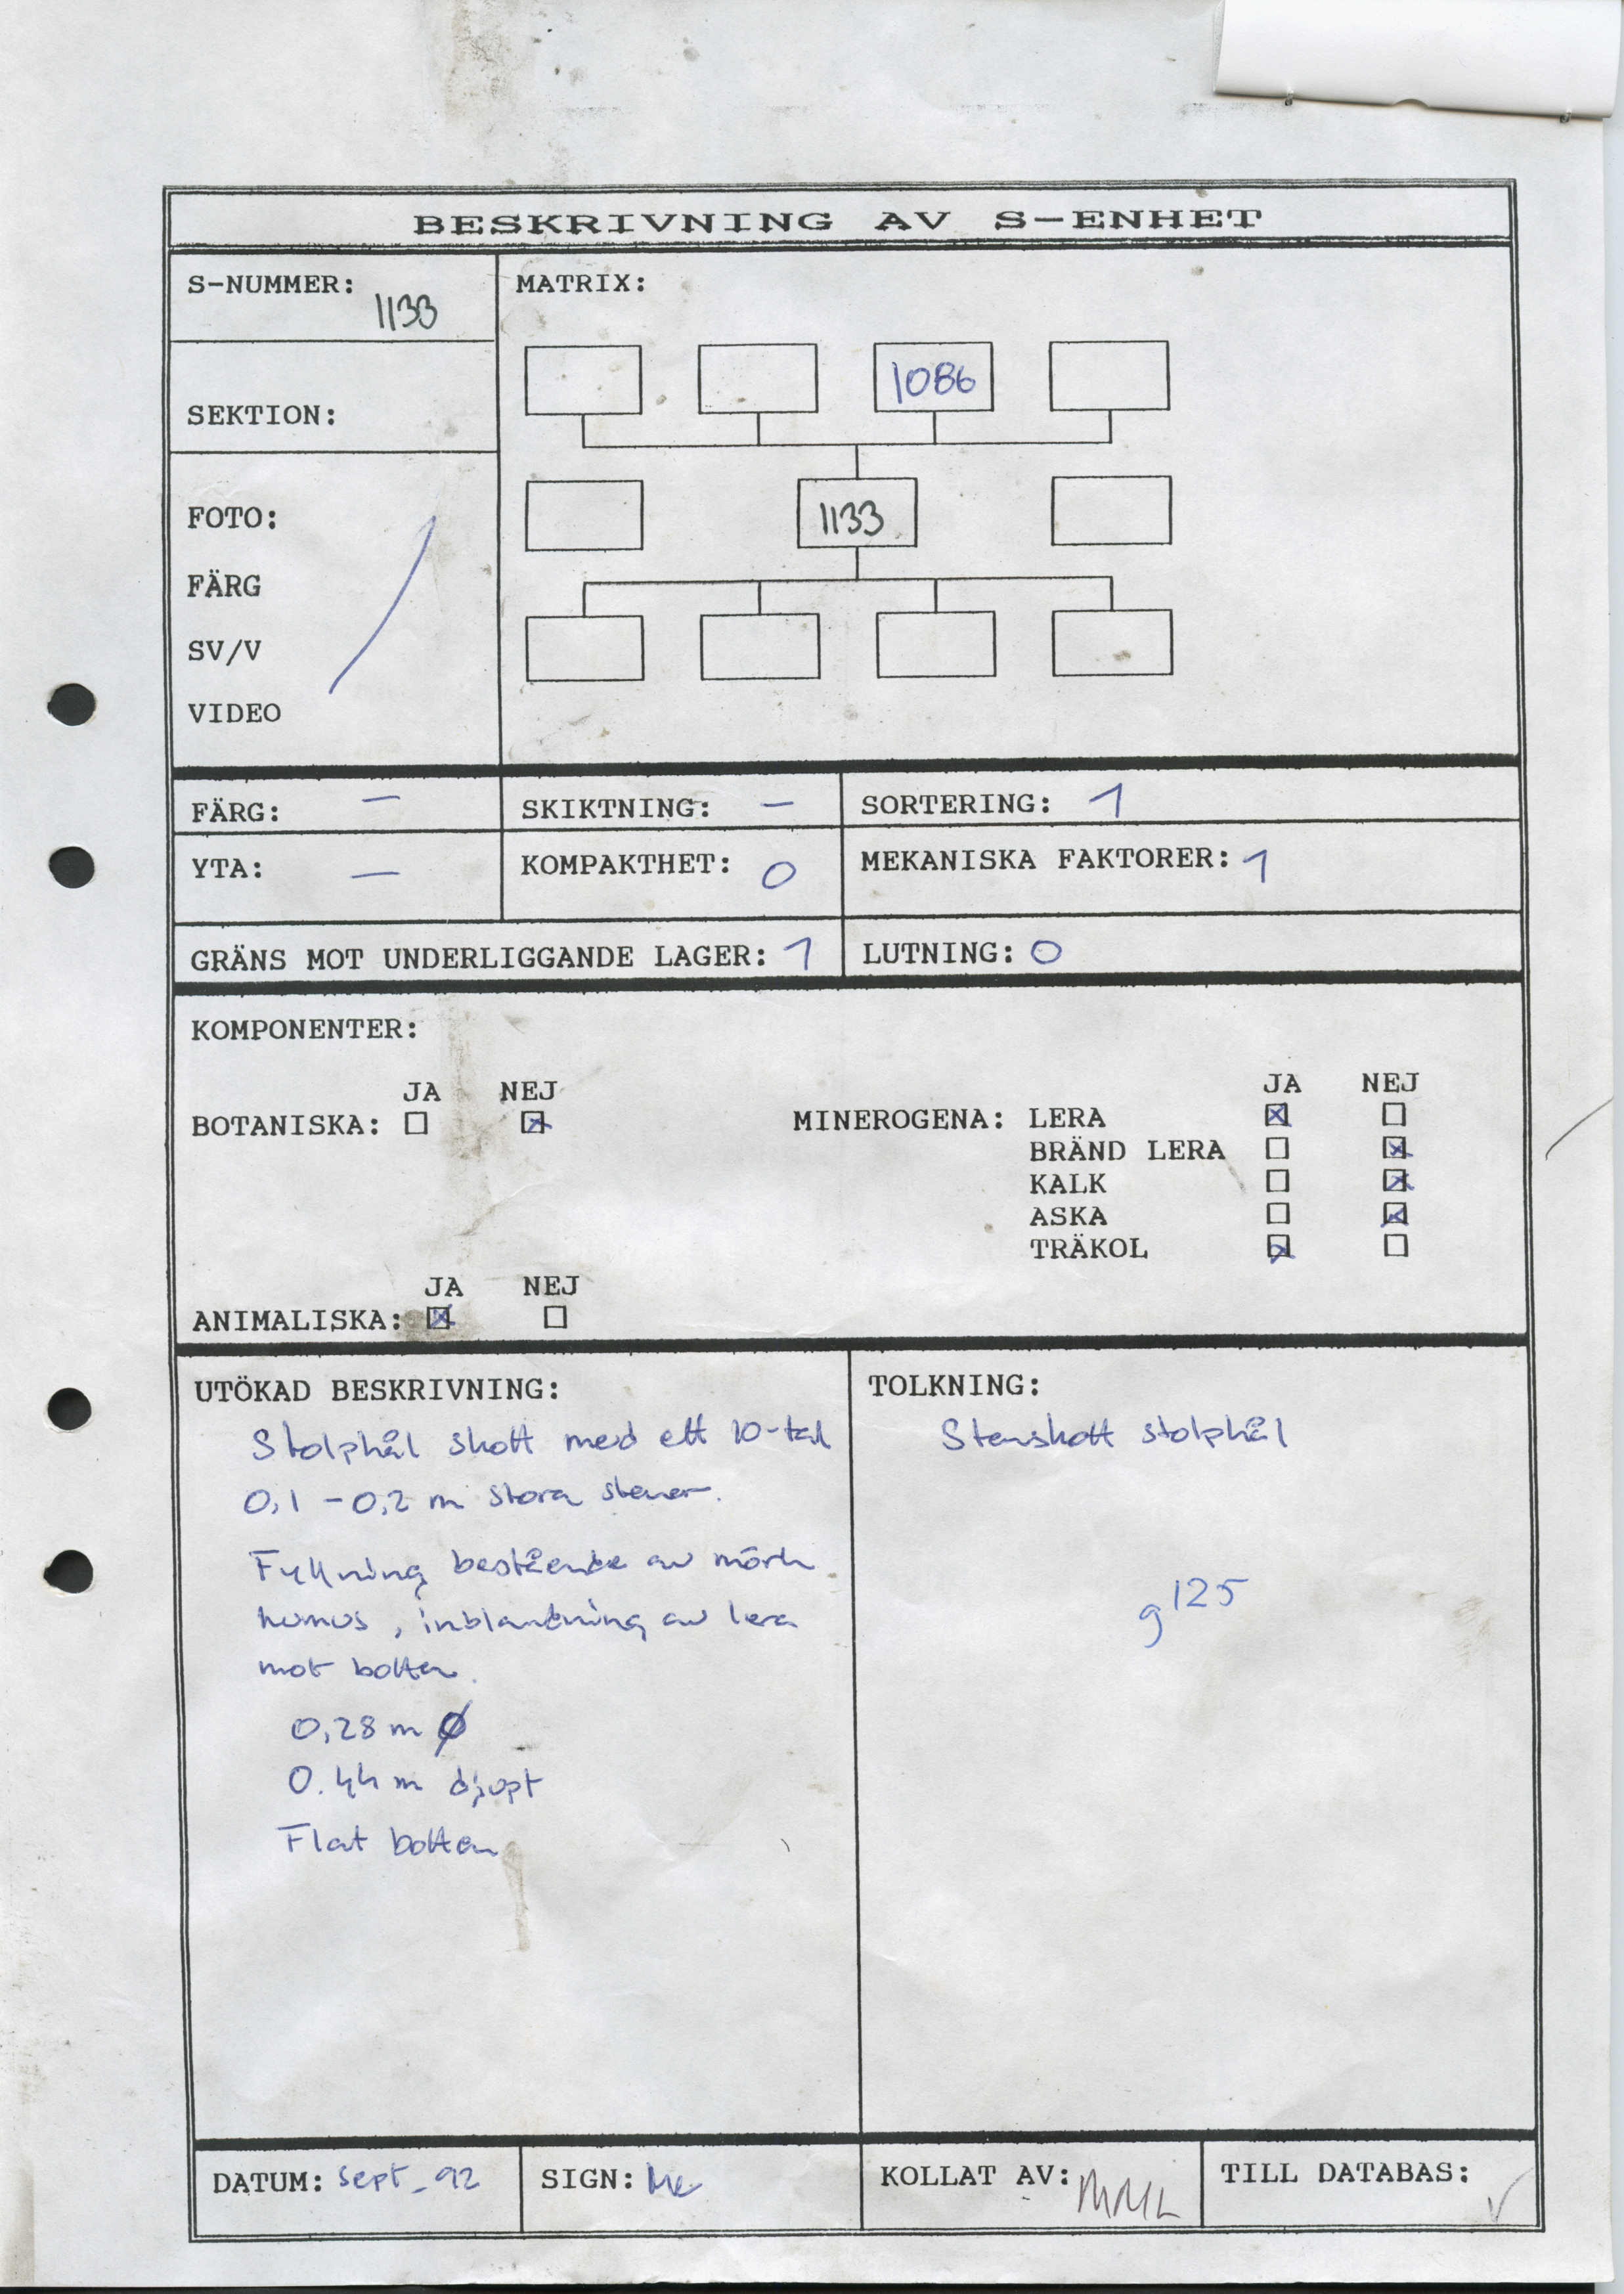 BESKRIVNING AV S-ENHET
S-NUMMER: 1133
MATRIX:
1086
SEKTION:
1133
FOTO:
FÄRG
SV/V
VIDEO
FÄRG: —
SKIKTNING: —
SORTERING: 1
YTA: —
KOMPAKTHET: 0
MEKANISKA FAKTORER: 1
GRÄNS MOT UNDERLIGGANDE LAGER: 1
LUTNING: 0
KOMPONENTER:
JA NEJ
BOTANISKA: ☐ ☒
JA NEJ
MINEROGENA: LERA ☒ ☐
BRÄND LERA ☐ ☒
KALK ☐ ☒
ASKA ☐ ☒
TRÄKOL ☒ ☐
JA NEJ
ANIMALISKA: ☒ ☐
UTÖKAD BESKRIVNING:
Stolphål skott med ett 10-tal
0,1 - 0,2 m stora stenar.
Fyllning bestående av mörk
humus, inblandning av lera
mot botten.
0,28 m Ø
0.44 m djupt
Flat botten
TOLKNING:
Stenskott stolphål
g125
DATUM: sept_92
SIGN:
KOLLAT AV:
TILL DATABAS: ✓